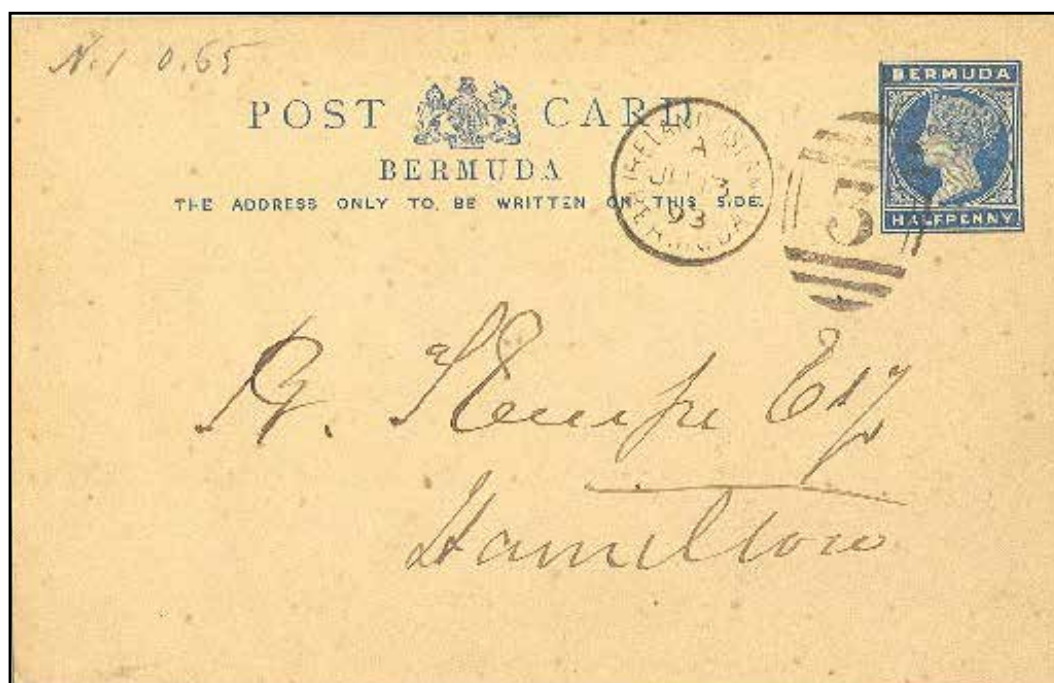 N.1 0.65
BERMUDA
POST CARD
BERMUDA
THE ADDRESS ONLY TO BE WRITTEN ON THIS SIDE.
HALFPENNY
IRELAND ISLAND
A
JU 13
93
BERMUDA
3
Kempe Esq
Hamilton